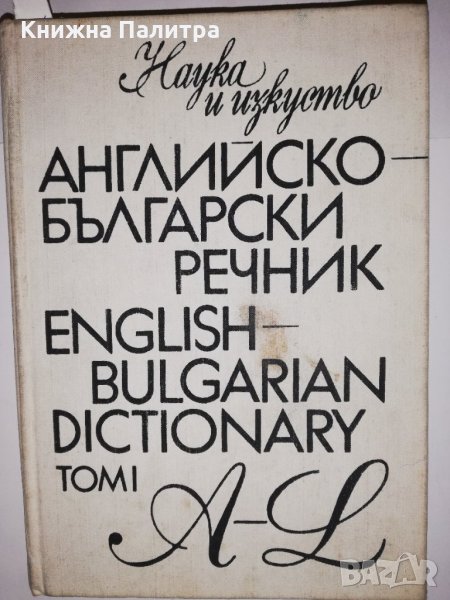 Книжна Палитра
Наука
и изкуство
АНГЛИЙСКО-
БЪЛГАРСКИ
РЕЧНИК
ENGLISH-
BULGARIAN
DICTIONARY
ТОМ I
A-L
BAZAR